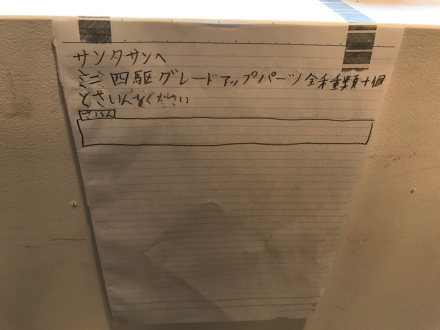 サンタサンへ
ミニ四駆グレードアップパーツ全種類十個
とさいんをください
さいん